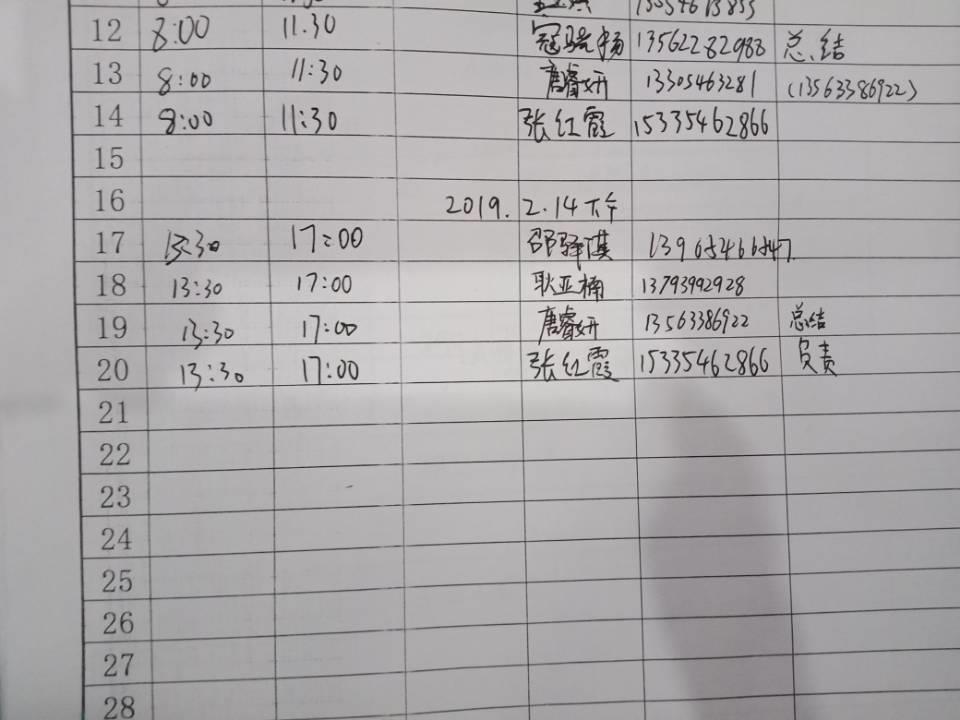 12 8:00 11.30 冠晓杨 13562282988 总结
13 8:00 11:30 唐睿妍 13305463281 (13563386922)
14 8:00 11:30 张红霞 15335462866
15
16 2019. 2.14 下午
17 13:30 17:00 邵驿淇
18 13:30 17:00 耿亚楠 13793992928
19 13:30 17:00 唐睿妍 13563386922 总结
20 13:30 17:00 张红霞 15335462866 负责
21
22
23
24
25
26
27
28